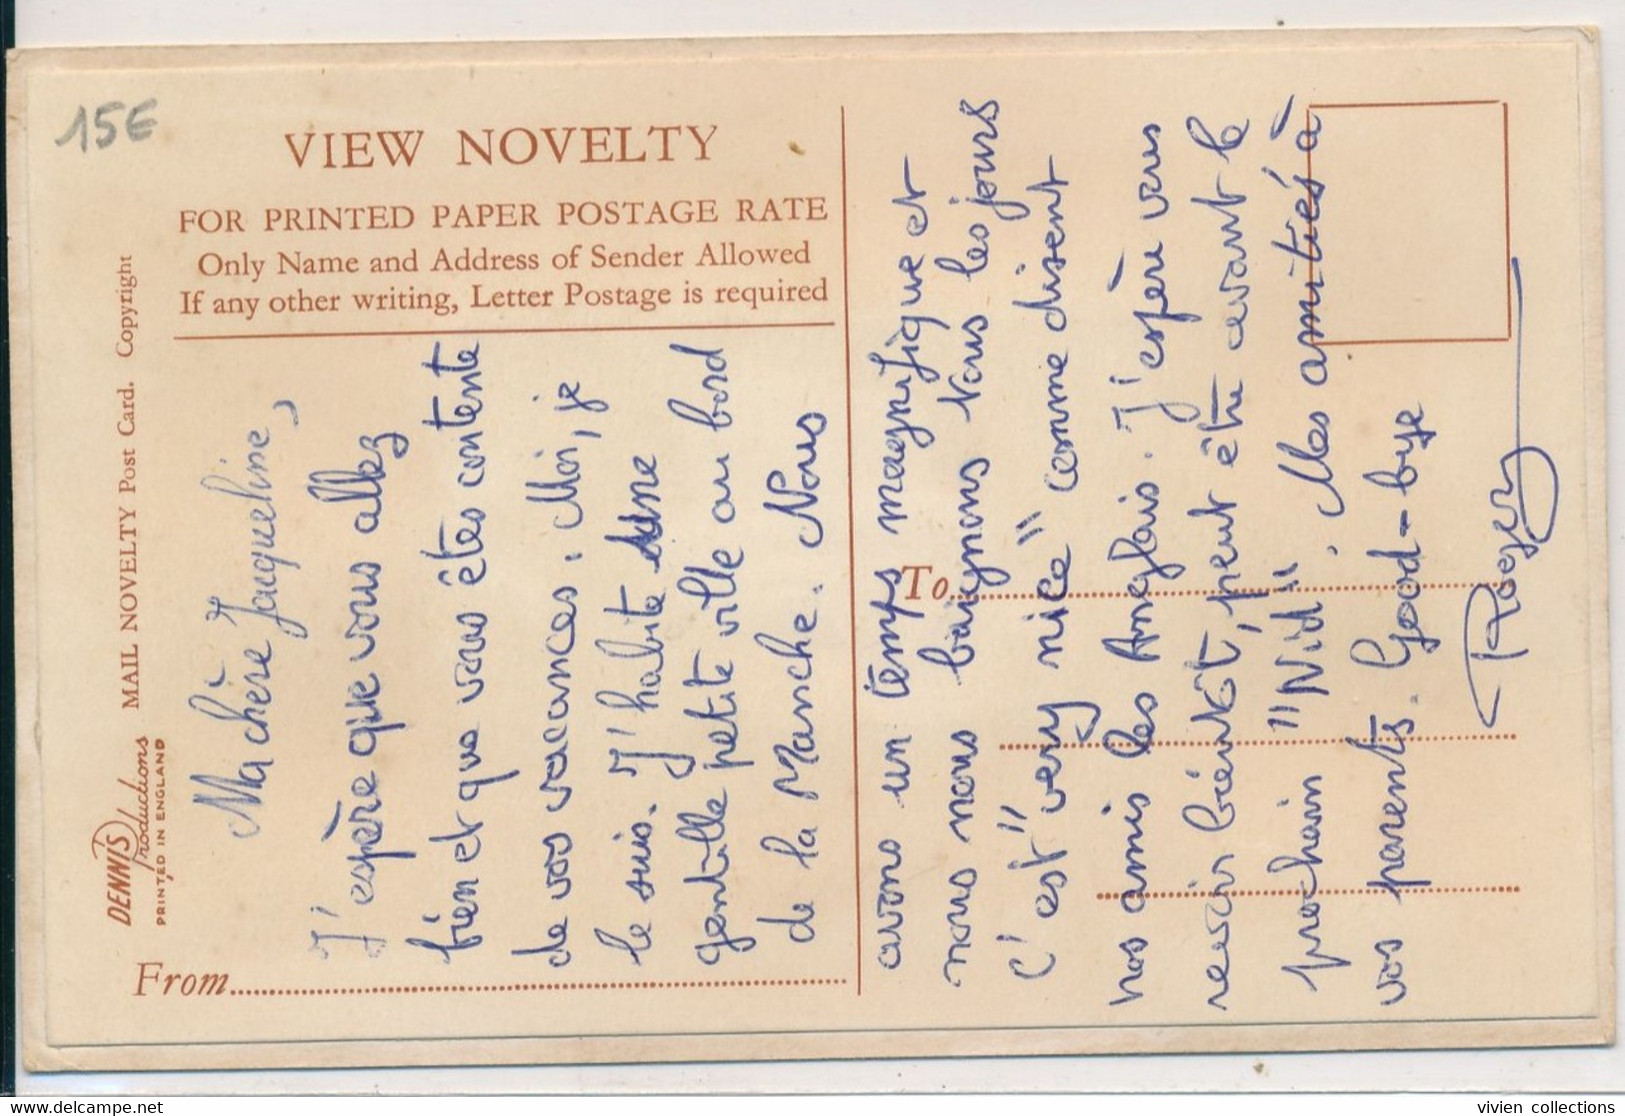 15€
VIEW NOVELTY
FOR PRINTED PAPER POSTAGE RATE
Only Name and Address of Sender Allowed
If any other writing, Letter Postage is required
DENNIS
Productions
PRINTED IN ENGLAND
MAIL NOVELTY Post Card. Copyright
From
To
Ma chère Jaqueline,
J'espère que vous allez
bien et que vous êtes contente
de vos vacances. Moi, je
le suis. J'habite une
gentille petite ville au bord
de la Manche. Nous
avons un temps magnifique et
nous nous baignons tous les jours
C'est "very nice" comme disent
nos amis les Anglais. J'espère vous
revoir bientôt, peut être avant le
prochain "Nid". Mes amitiés à
vos parents. Good-bye
Roger
www.delcampe.net
vivien collections